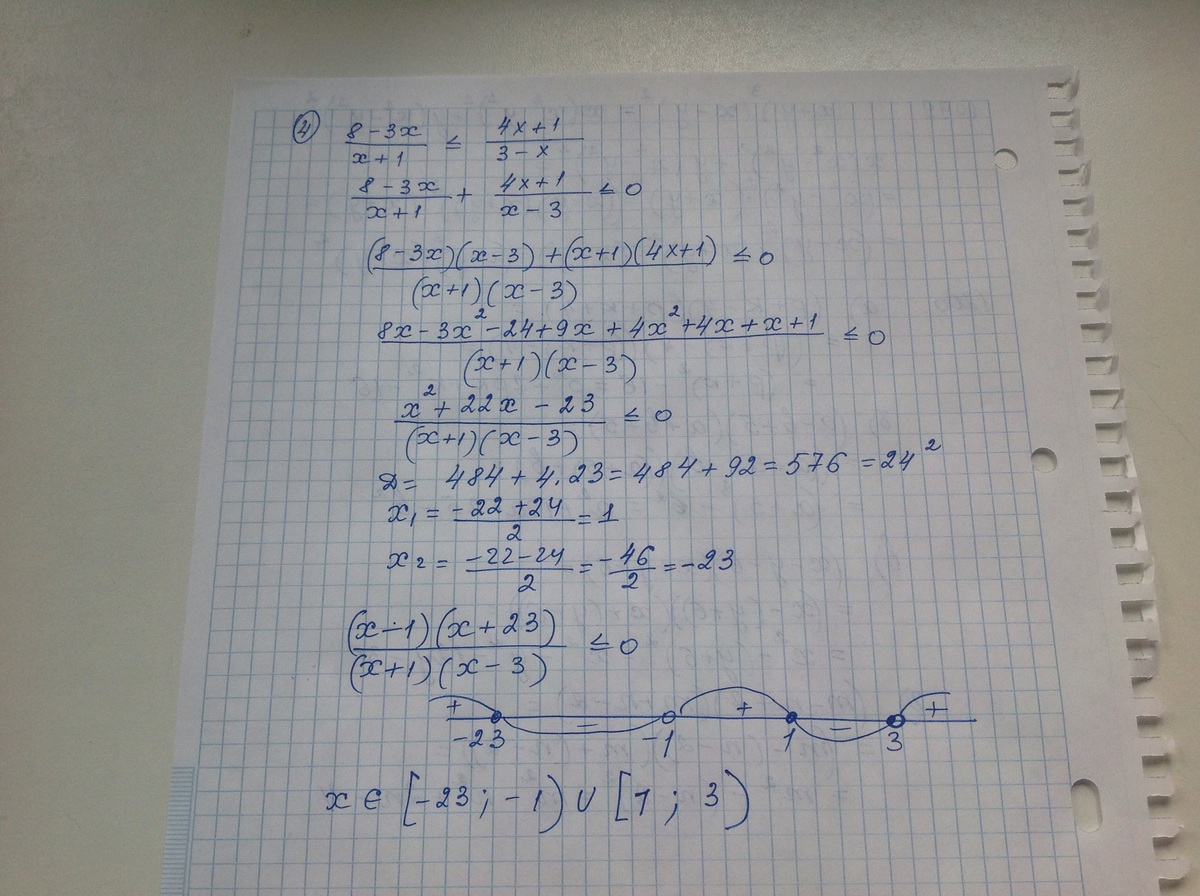 ④ (8-3x)/(x+1) ≤ (4x+1)/(3-x)
(8-3x)/(x+1) + (4x+1)/(x-3) ≤ 0
((8-3x)(x-3)+(x+1)(4x+1))/((x+1)(x-3)) ≤ 0
(8x-3x²-24+9x+4x²+4x+x+1)/((x+1)(x-3)) ≤ 0
(x²+22x-23)/((x+1)(x-3)) ≤ 0
D= 484+4.23=484+92=576=24²
x₁=(-22+24)/2=1
x₂=(-22-24)/2=-46/2=-23
((x-1)(x+23))/((x+1)(x-3)) ≤ 0
+ - + - +
-23 -1 1 3
x∈[-23;-1)∪[1;3)